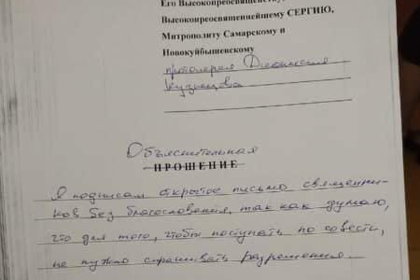 Его Высокопреосвященству,
Высокопреосвященнейшему СЕРГИЮ,
Митрополиту Самарскому и
Новокуйбышевскому
протоиерея Дионисия
Кузнецова
Объяснительная
ПРОШЕНИЕ
Я подписал открытое письмо священни-
ков без благословения, так как думаю,
что для того, чтобы поступать по совести,
не нужно спрашивать разрешения...